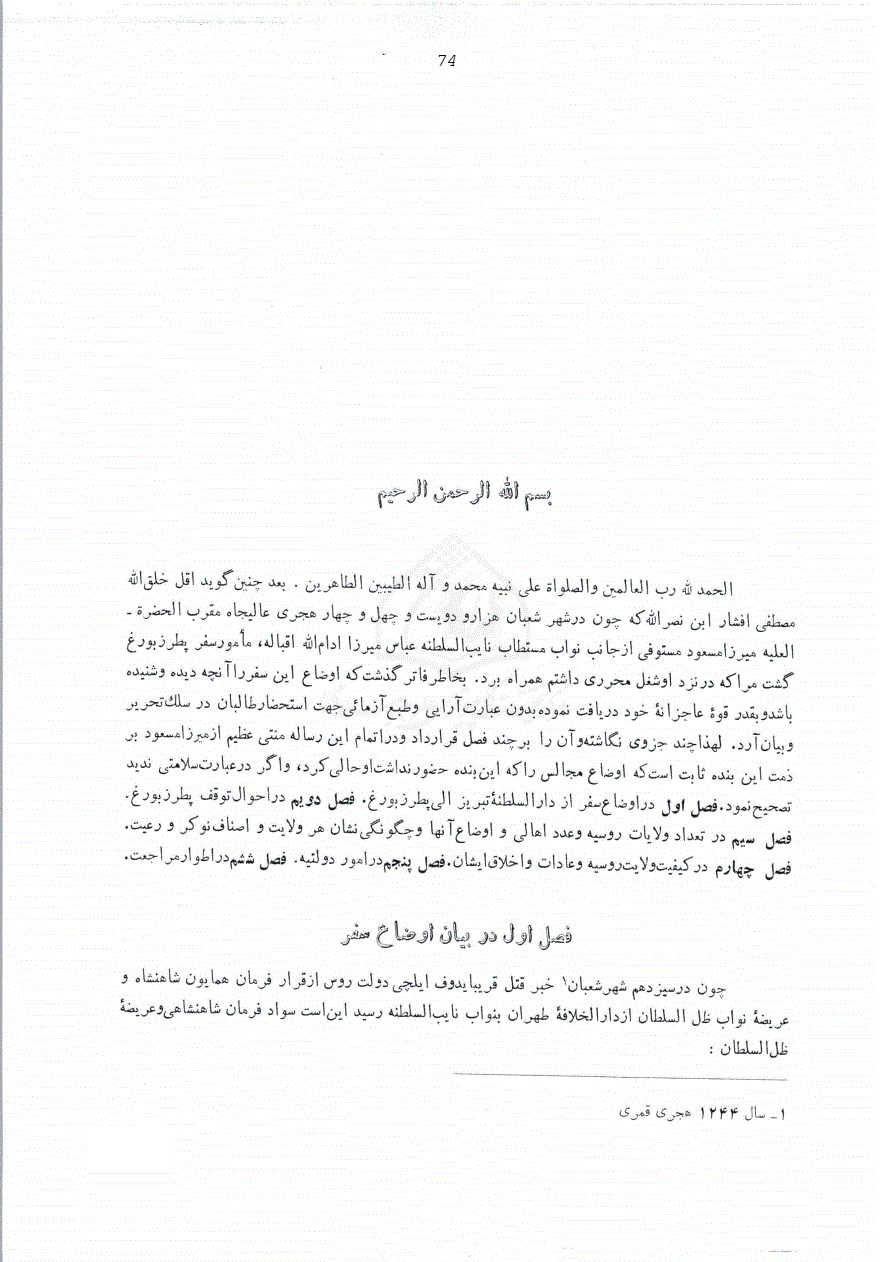 74
بسم الله الرحمن الرحیم
الحمد لله رب العالمین والصلواة علی نبیه محمد و آله الطیبین الطاهرین . بعد چنین گوید اقل خلق الله
مصطفی افشار ابن نصرالله که چون درشهر شعبان هزارو دویست و چهل و چهار هجری عالیجاه مقرب الحضرة ـ
العلیه میرزامسعود مستوفی ازجانب نواب مستطاب نایب السلطنه عباس میرزا ادام الله اقباله، مأمورسفر پطرزبورغ
گشت مراکه درنزد اوشغل محرری داشتم همراه برد. بخاطرفاتر گذشت که اوضاع این سفرراآنچه دیده وشنیده
باشدوبقدر قوهٔ عاجزانهٔ خود دریافت نموده بدون عبارت آرایی وطبع آزمائی جهت استحضارطالبان در سلك تحریر
وبیان آرد. لهذاچند جزوی نگاشته وآن را برچند فصل قرارداد ودراتمام این رساله منتی عظیم ازمیرزامسعود بر
ذمت این بنده ثابت است که اوضاع مجالس راکه این بنده حضورنداشت اوحالی کرد، واگر درعبارت سلامتی ندید
تصحیح نمود. فصل اول دراوضاع سفر از دارالسلطنهٔ تبریز الی پطرزبورغ. فصل دویم دراحوال توقف پطرزبورغ.
فصل سیم در تعداد ولایات روسیه وعدد اهالی و اوضاع آنها وچگونگی نشان هر ولایت و اصناف نوکر و رعیت.
فصل چهارم درکیفیت ولایت روسیه وعادات واخلاق ایشان. فصل پنجم درامور دولتیه. فصل ششم دراطوارمراجعت.
فصل اول در بیان اوضاع سفر
چون درسیزدهم شهرشعبان۱ خبر قتل قریبایدوف ایلچی دولت روس ازقرار فرمان همایون شاهنشاه و
عریضهٔ نواب ظل السلطان ازدارالخلافهٔ طهران بنواب نایب السلطنه رسید این است سواد فرمان شاهنشاهی وعریضهٔ
ظل السلطان :
۱ـ سال ۱۲۴۴ هجری قمری